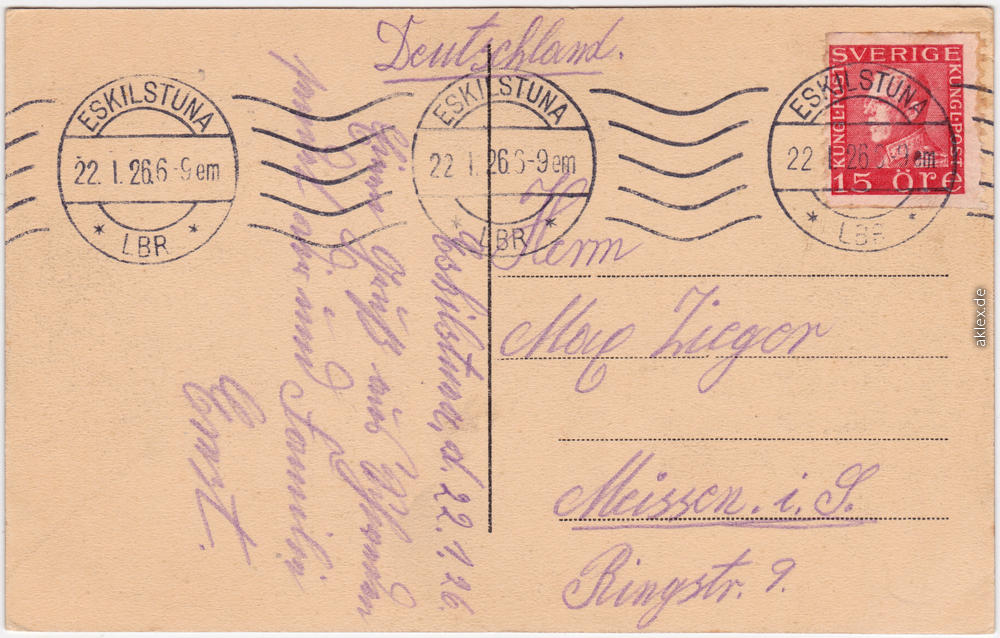 Deutschland.
SVERIGE
KUNGL. POST
15 ÖRE
ESKILSTUNA
22. 1. 26.6-9 em
* LBR *
ESKILSTUNA
22 1. 26.6-9 em
* LBR *
ESKILSTUNA
22 26 9 em
* LBR *
Eskilstuna, d. 22.1.26.
Gruß aus
Familie
Herrn
Max Zieger
Meissen. i. S.
Ringstr. 9.
aklex.de